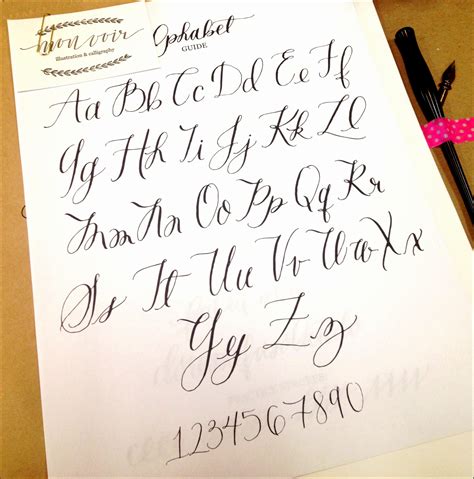 mon voir
illustration & calligraphy
Alphabet
GUIDE
Aa Bb Cc Dd Ee Ff
Gg Hh Ii Jj Kk Ll
Mm Nn Oo Pp Qq Rr
Ss Tt Uu Vv Ww Xx
Yy Zz
1234567890